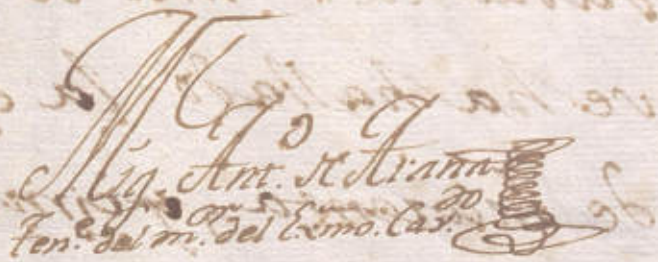 Mig. Ant.º de Arana
Ten.e del m.or del Exmo. Cav.do